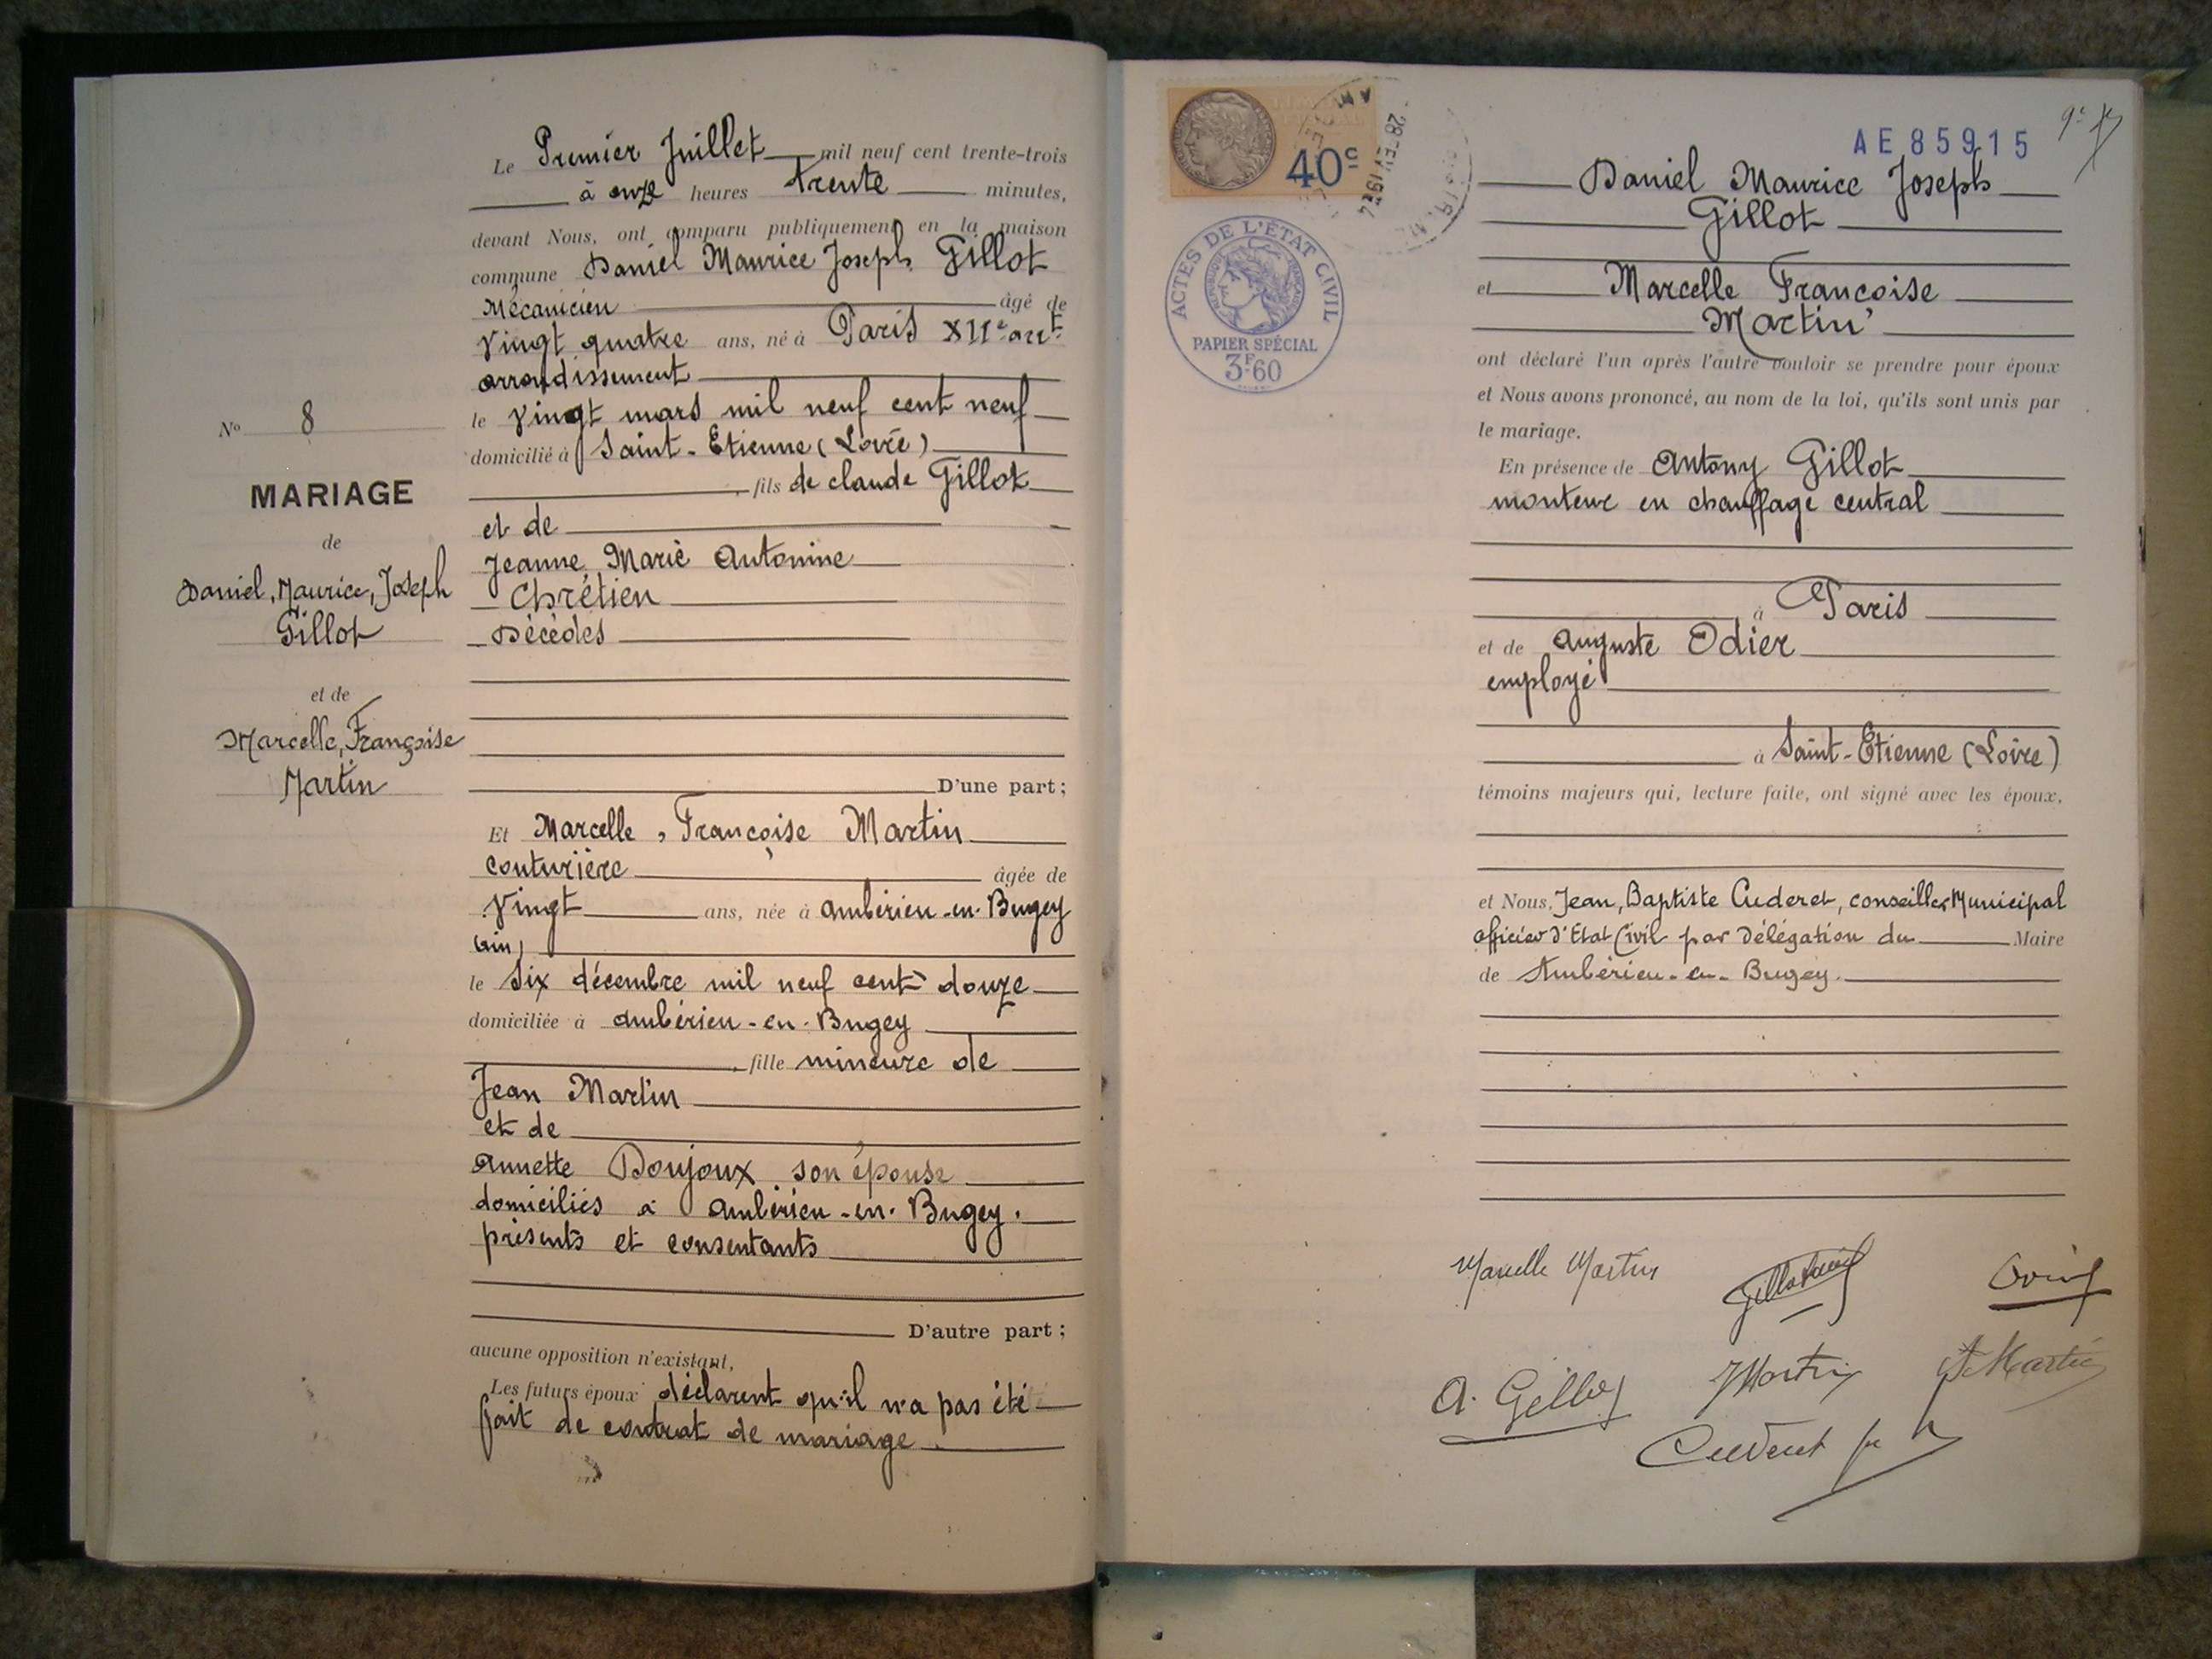 Le Premier Juillet mil neuf cent trente-trois
à onze heures trente minutes,
devant Nous, ont comparu publiquement en la maison
commune Daniel Maurice Joseph Gillot
Mécanicien âgé de
vingt quatre ans, né à Paris XIIe arrt
arrondissement
le vingt mars mil neuf cent neuf
domicilié à Saint-Etienne (Loire)
, fils de claude Gillot
et de
Jeanne Marie Antonine
Chrétien
Décédés
D'une part;
Et Marcelle, Françoise Martin
couturière âgée de
Vingt ans, née à Ambérieu-en-Bugey
(Ain)
le six décembre mil neuf cent douze
domiciliée à Ambérieu-en-Bugey
, fille mineure de
Jean Martin
et de
Annette Doujoux son épouse
domiciliés à Ambérieu-en-Bugey.
présents et consentants
D'autre part;
aucune opposition n'existant,
Les futurs époux déclarent qu'il n'a pas été
fait de contrat de mariage.
No 8
MARIAGE
de
Daniel, Maurice, Joseph
Gillot
et de
Marcelle, Françoise
Martin
40c
ACTES DE L'ÉTAT CIVIL
RÉPUBLIQUE FRANÇAISE
PAPIER SPÉCIAL
3F60
AE85915
Daniel Maurice Joseph
Gillot
et Marcelle Francoise
Martin
ont déclaré l'un après l'autre vouloir se prendre pour époux
et Nous avons prononcé, au nom de la loi, qu'ils sont unis par
le mariage.
En présence de Antony Gillot
monteur en chauffage central
à Paris
et de Auguste Odier
employé
à Saint-Etienne (Loire)
témoins majeurs qui, lecture faite, ont signé avec les époux,
et Nous, Jean, Baptiste Cuderet, conseiller Municipal
officier d'Etat Civil par Délégation du Maire
de Ambérieu-en-Bugey.
Marcelle Martin
A. Gillot
JMartin
Martin
Cuderet